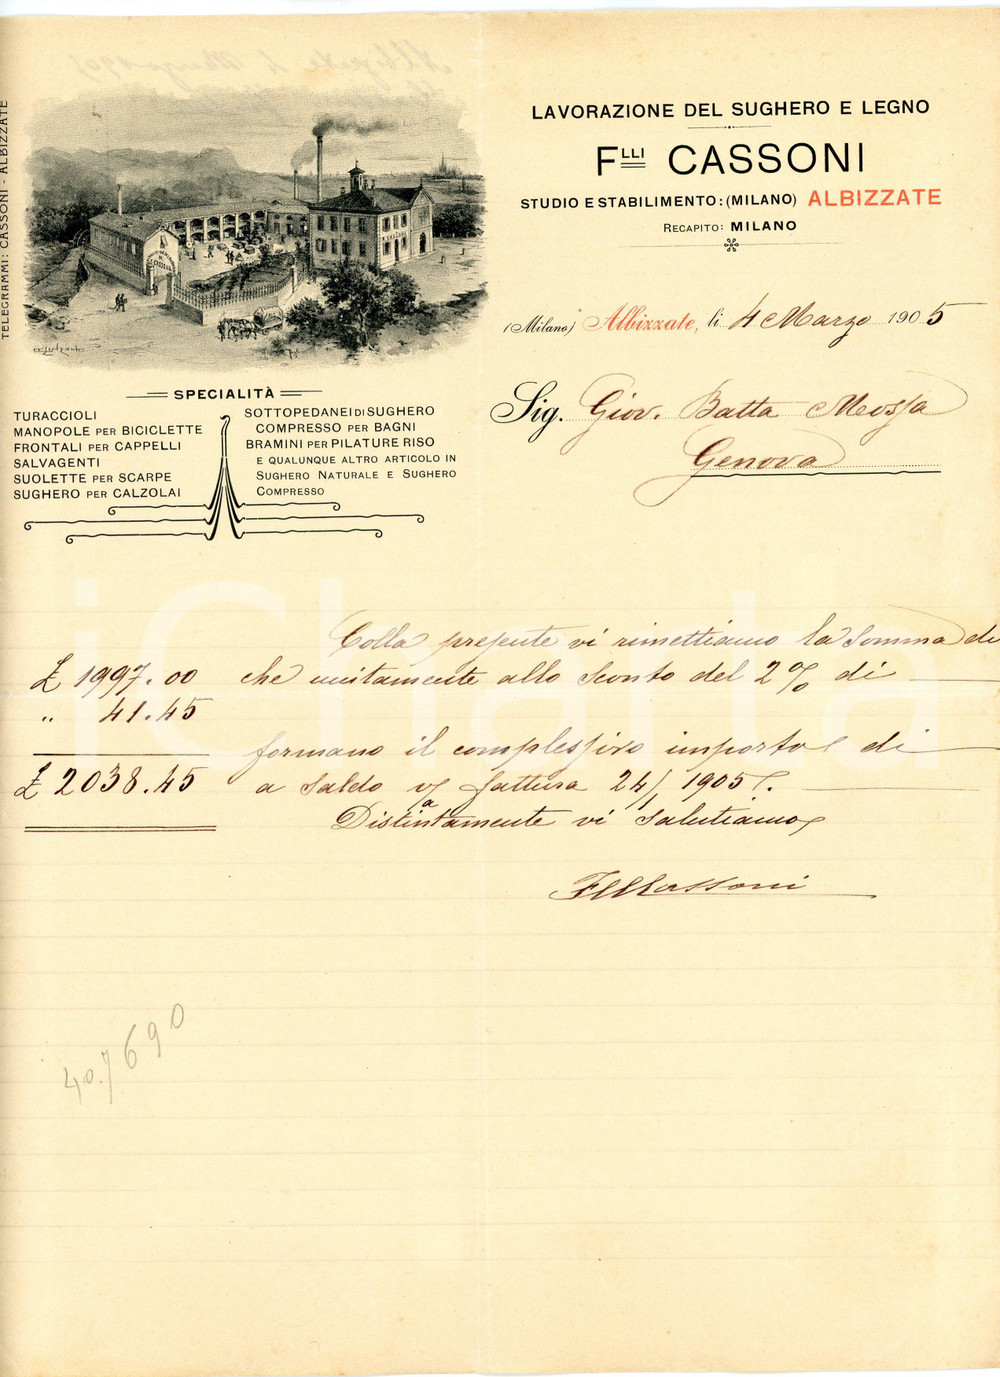 TELEGRAMMI: CASSONI - ALBIZZATE
LAVORAZIONE DEL SUGHERO E LEGNO
FLLI CASSONI
STUDIO E STABILIMENTO: (MILANO) ALBIZZATE
RECAPITO: MILANO
(Milano) Albizzate, li 4 Marzo 1905
Sig. Giov. Batta Mossa
Genova
SPECIALITÀ
TURACCIOLI
MANOPOLE PER BICICLETTE
FRONTALI PER CAPPELLI
SALVAGENTI
SUOLETTE PER SCARPE
SUGHERO PER CALZOLAI
SOTTOPEDANEI DI SUGHERO
COMPRESSO PER BAGNI
BRAMINI PER PILATURE RISO
E QUALUNQUE ALTRO ARTICOLO IN
SUGHERO NATURALE E SUGHERO
COMPRESSO
Colla presente vi rimettiamo la somma di
£ 1997.00 che unitamente allo sconto del 2% di
" 41.45
formano il complessivo importo di
£ 2038.45 a saldo va fattura 24/1 1905.
Distintamente vi salutiamo
Flli Cassoni
40.7690
iCharta